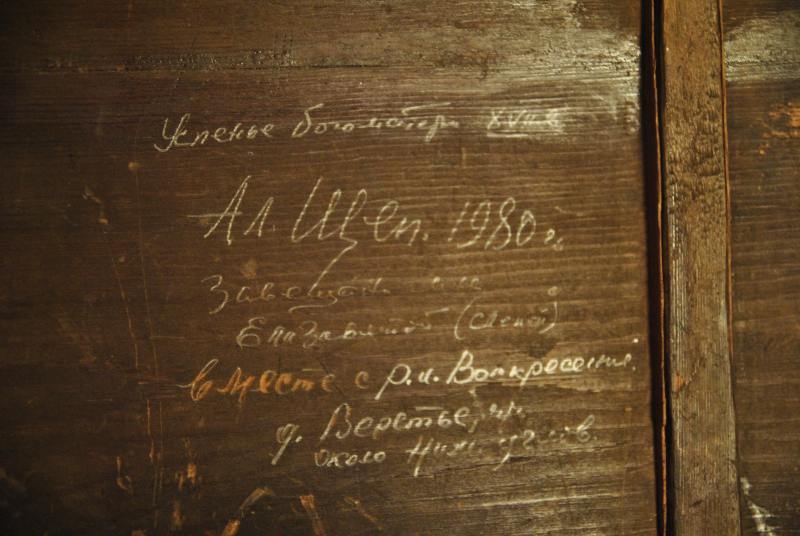 Успенье богоматери XVIII в
Ал. Щеп. 1980 г.
Завещана
Елизаветой (слепой)
вместе с р.и. Воскресенье.
д. Верстье,
около Ниж.